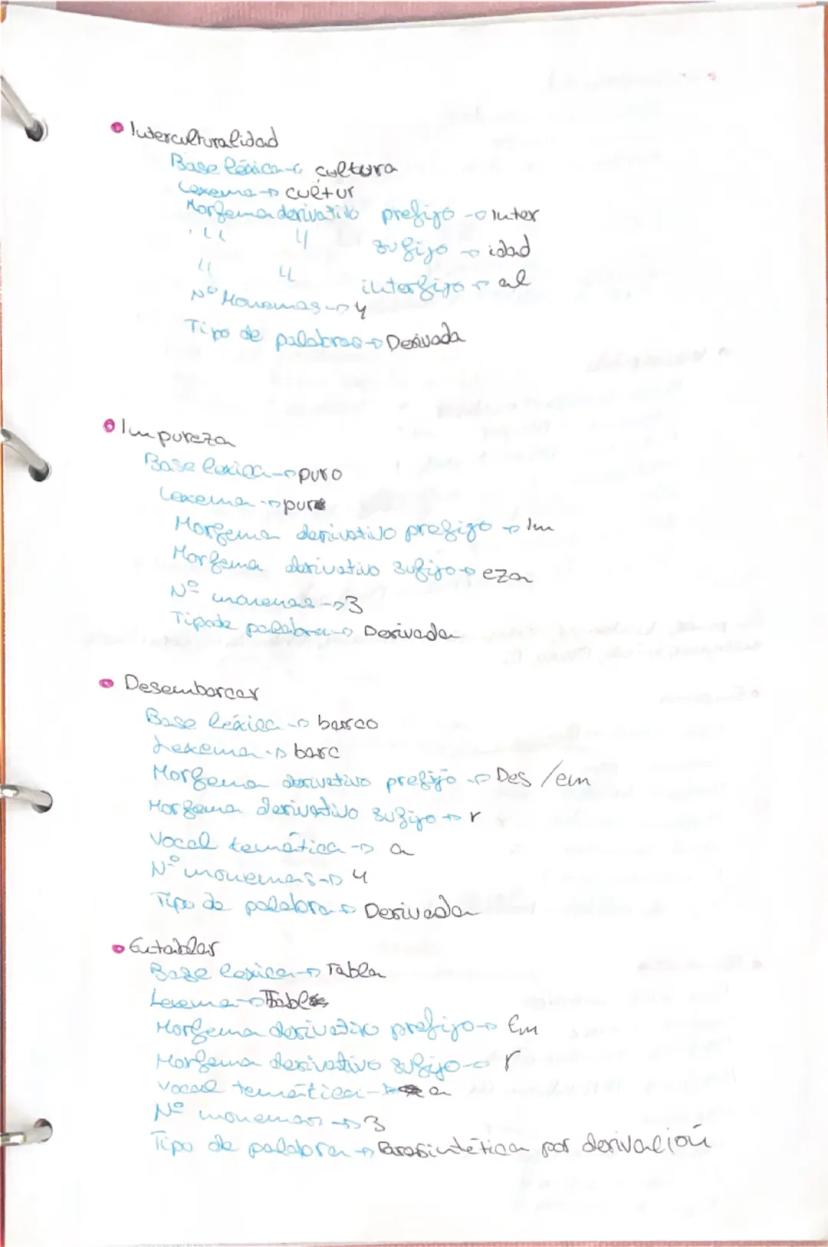 • Interculturalidad
Base léxica → cultura
Lexema → cultur
Morfema derivativo prefijo → Inter
" " sufijo → idad
" " interfijo → al
Nº Monemas → 4
Tipo de palabras → Derivada
• Impureza
Base lexica → puro
Lexema → pur
Morfema derivativo prefijo → Im
Morfema derivativo sufijo → eza
Nº monemas → 3
Tipo de palabra → Derivada
• Desembarcar
Base léxica → barco
Lexema → barc
Morfema derivativo prefijo → Des / em
Morfema derivativo sufijo → r
Vocal temática → a
Nº monemas → 4
Tipo de palabra → Derivada
• Entablar
Base lexica → Tabla
Lexema → Tabl
Morfema derivativo prefijo → Em
Morfema derivativo sufijo → r
Vocal temática → a
Nº monemas → 3
Tipo de palabra → Parasintética por derivación